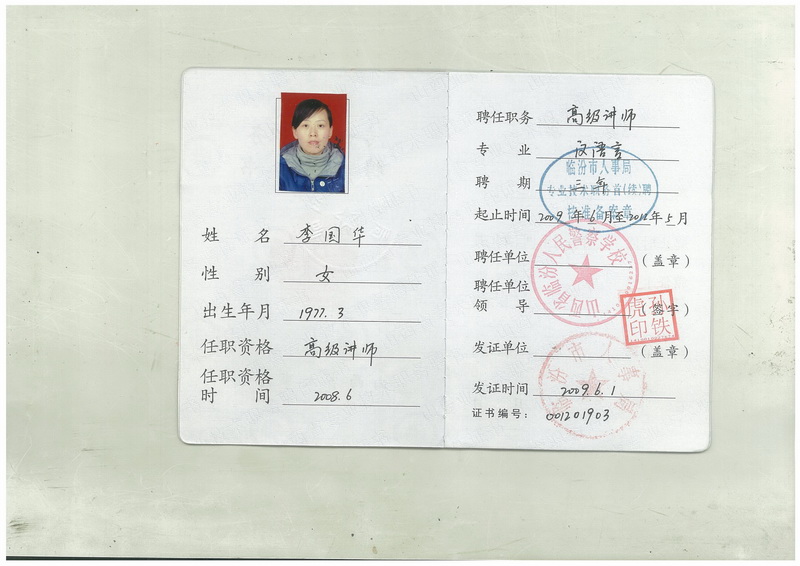 姓 名 李国华
性 别 女
出生年月 1977.3
任职资格 高级讲师
任职资格
时 间 2008.6
聘任职务 高级讲师
专 业 汉语言
临汾市人事局
聘 期 三年
专业技术职务首(续)聘
核准备案章
起止时间 2009年6月至2012年5月
山西省临汾人民警察学校
聘任单位 (盖章)
聘任单位
领 导 (签字)
孙铁虎印
发证单位 (盖章)
临汾市人事局
发证时间 2009.6.1
证书编号: 001201903